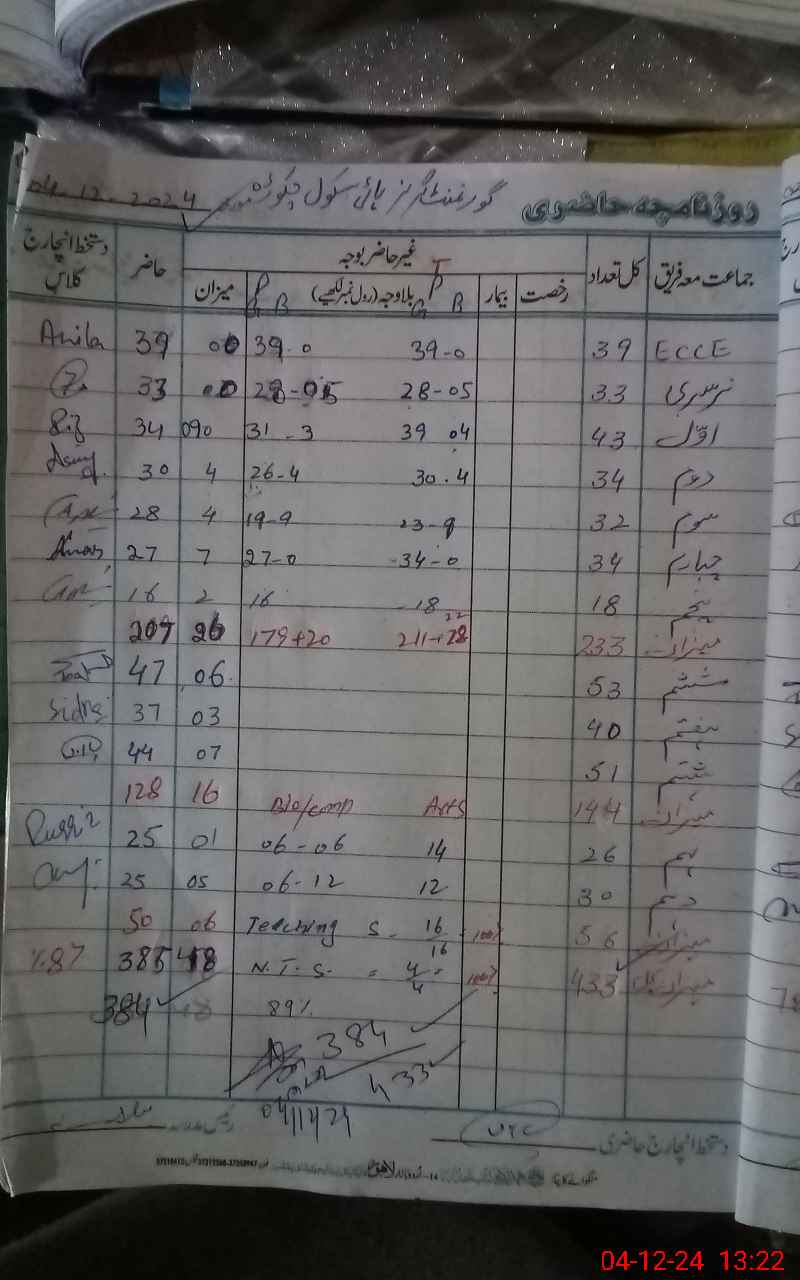 روزنامچہ حاضری گورنمنٹ گرلز ہائی سکول چکوڑہ 04.12.2024
جماعت معہ فریق کل تعداد غیر حاضر بوجہ حاضر دستخط انچارج کلاس
رخصت بیمار بلاوجہ (رول نمبر لکھیے) میزان
T P P
G B G B
ECCE 39 39-0 39-0 00 39 Anila
نرسری 33 28-05 28-05 00 33
اوّل 43 39 04 31-3 090 34
دوم 34 30.4 26-4 4 30
سوم 32 23-9 19-9 4 28
چہارم 34 34-0 27-0 7 27
پنجم 18 18 16 2 16
میزان 233 211+22 179+20 26 207
ششم 53 06 47
ہفتم 40 03 37 Sidra
ہشتم 51 07 44
میزان 144 Arts Bio/comp 16 128
نہم 26 14 06-06 01 25
دہم 30 12 06-12 05 25
میزان 56 100% Teaching S - 16/16 06 50
میزان کل 433 100% N.T.S. = 4/4 48 385 %87
89% 48 384
384
433
04/12/24
دستخط انچارج حاضری
04-12-24 13:22